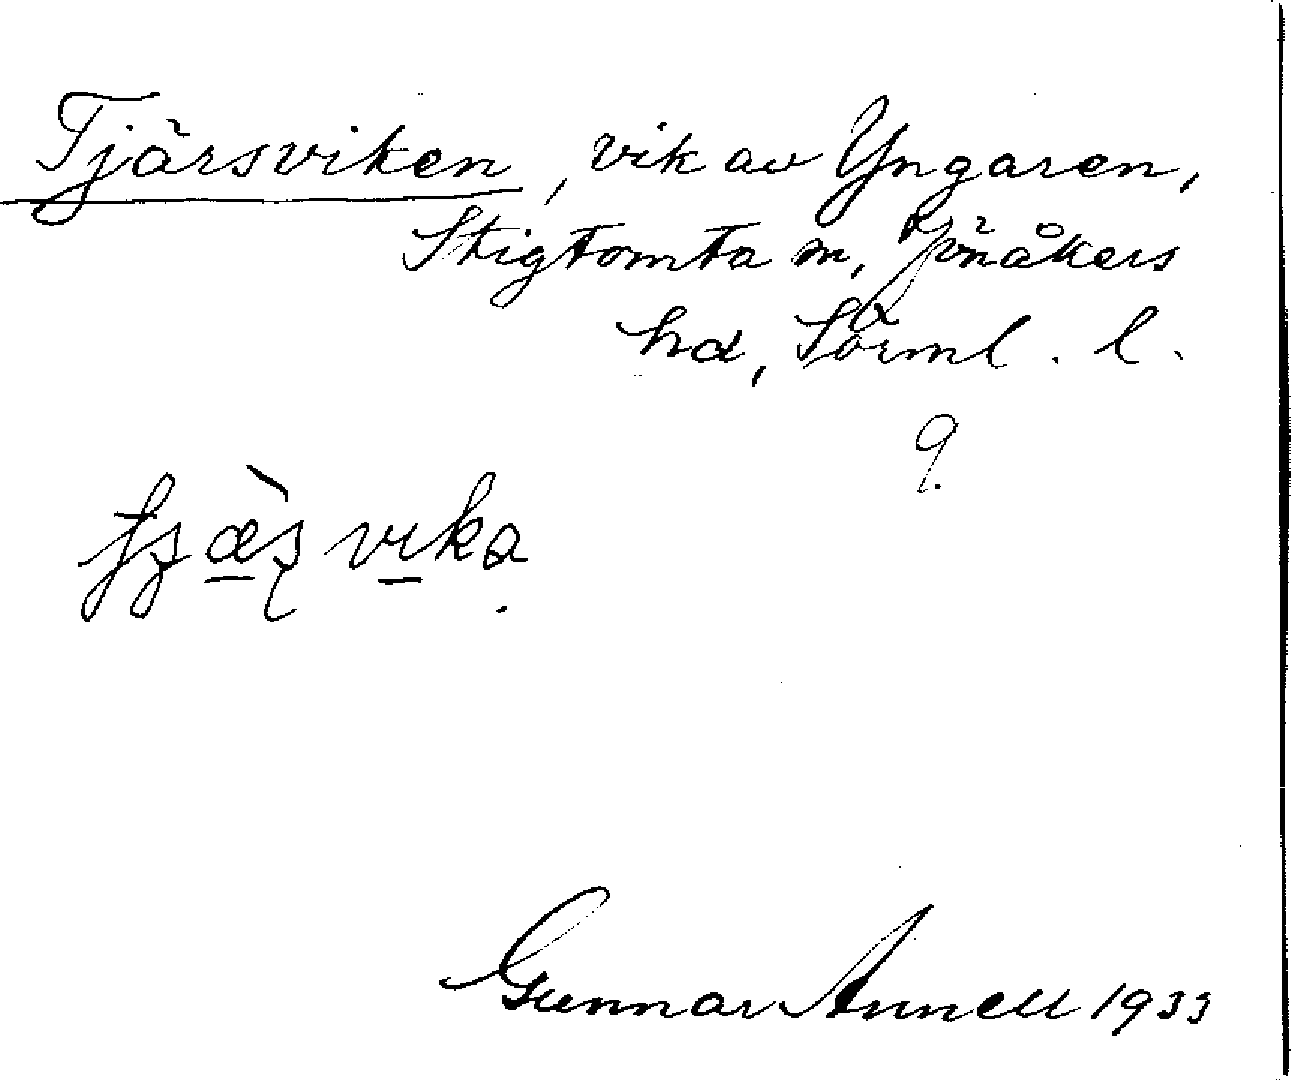 Tjärsviken, vik av Yngaren,
Stigtomta sn, Jönåkers
hd, Sörml. l.
9.
Gunnar Annell 1933